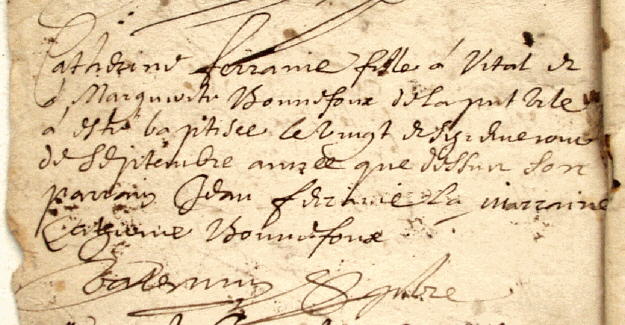 Catherine ferranie fille a Vital et
a Marguerite Bonnefoux de la pnt Ville
a este baptisee le vingt
de Septembre annee que dessus son
parrain Jean ferranie la marraine
Catherine Bonnefoux